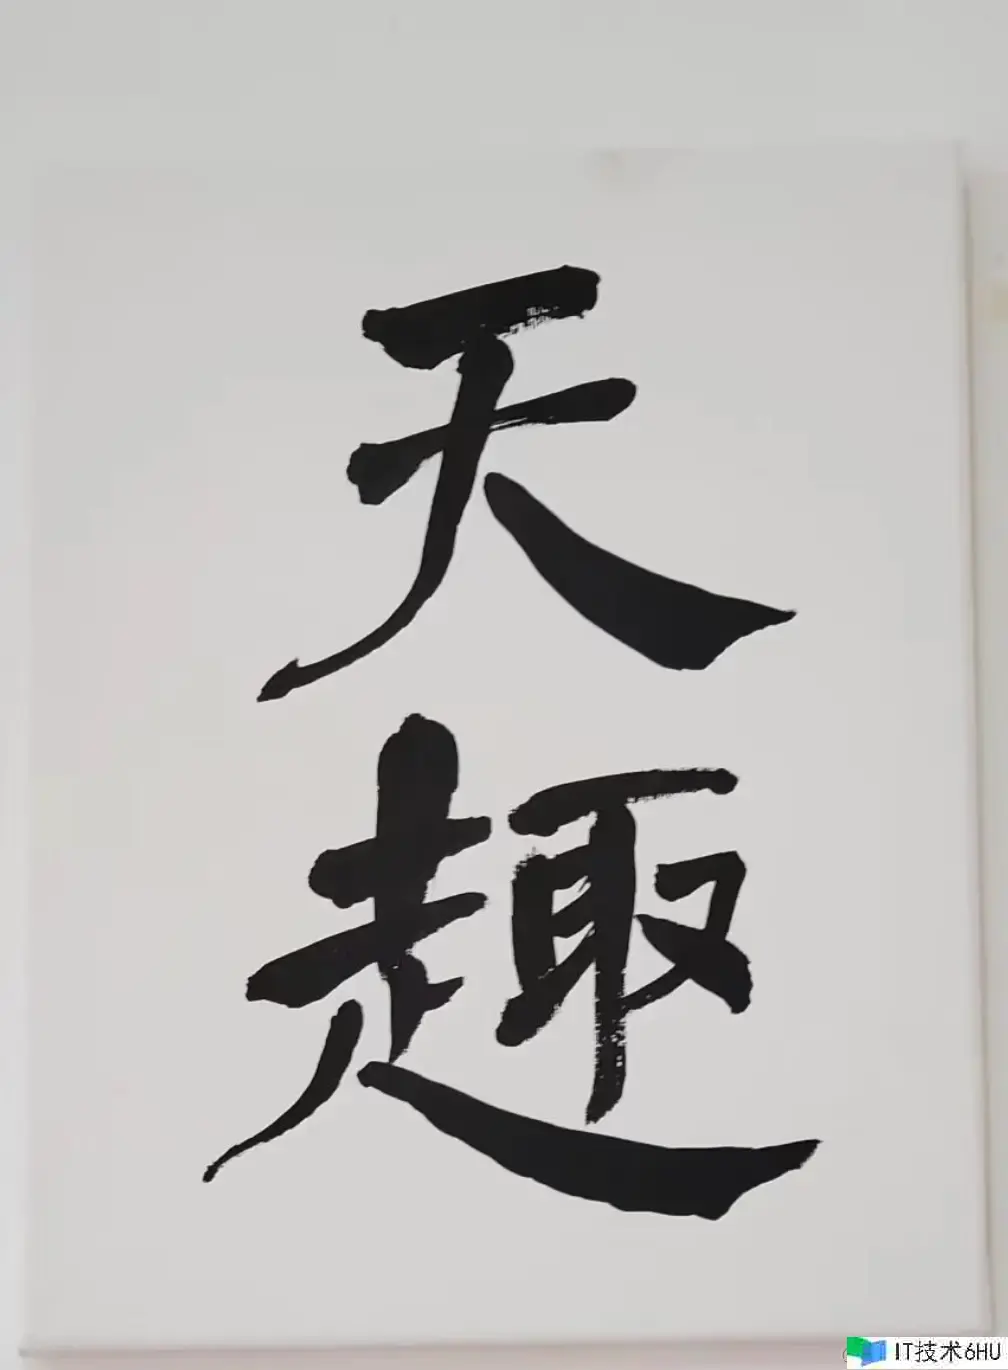 天趣
IT技术6HU